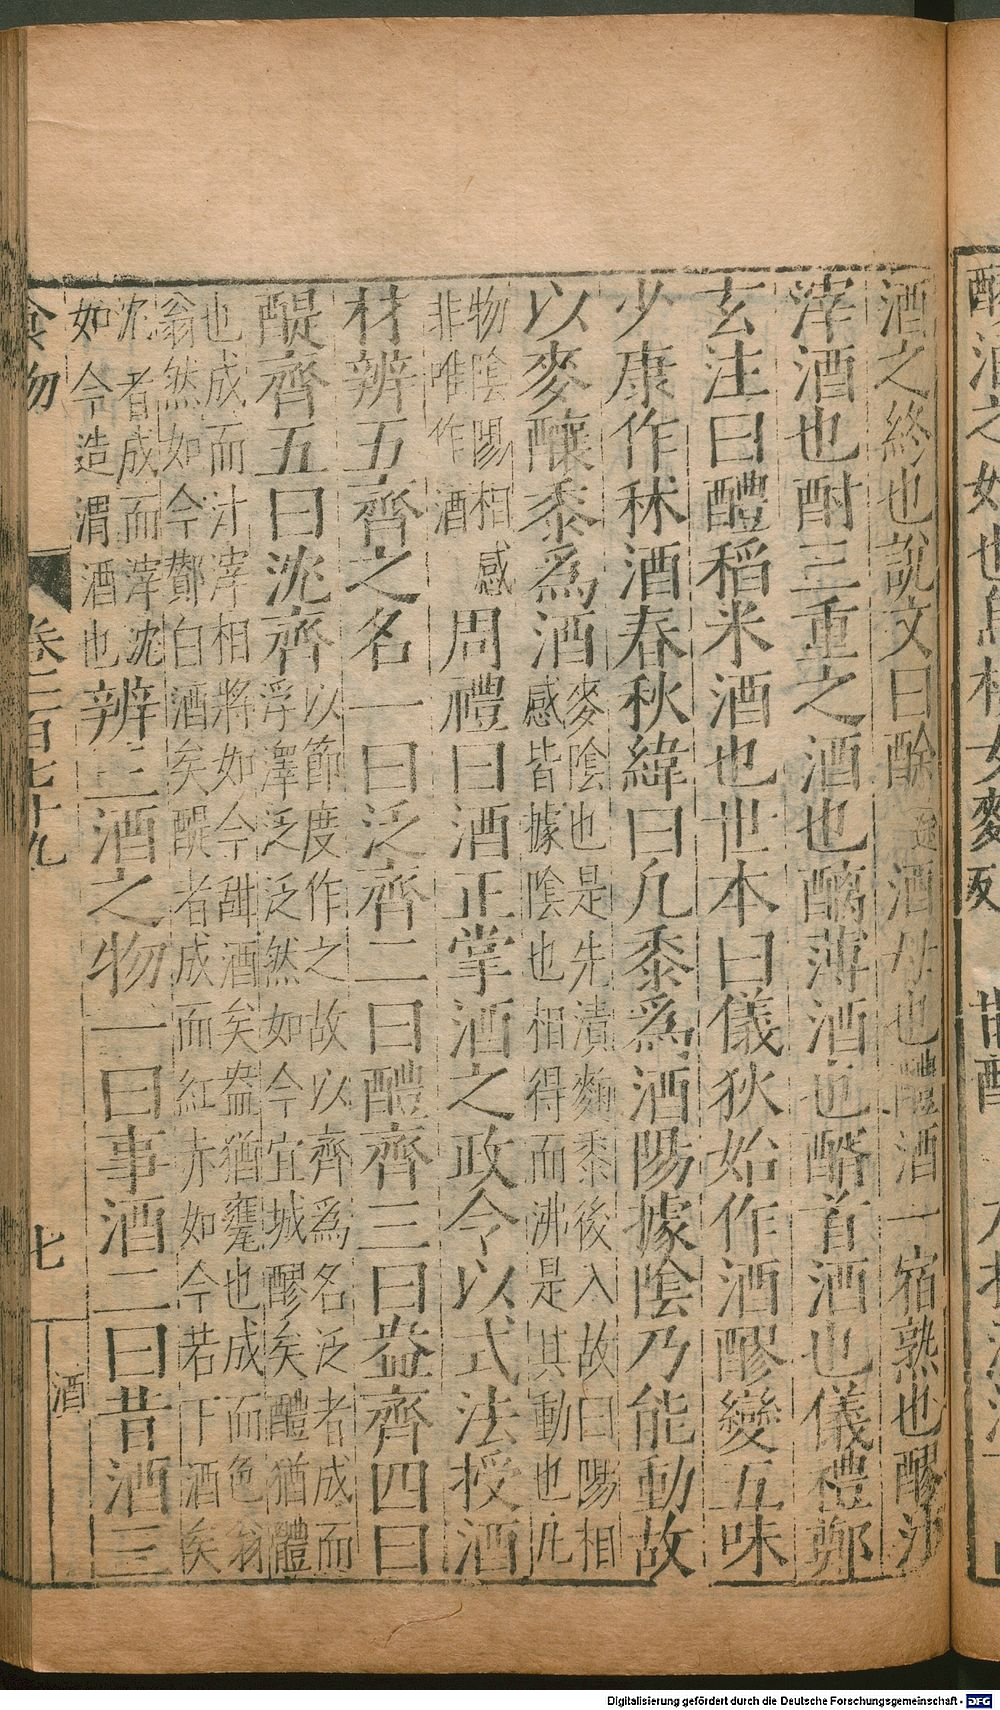 酒之終也說文曰酴途酒母也醴酒一宿熟也醪汁
滓酒也酎三重之酒也醨薄酒也醑旨酒也儀禮鄭
玄注曰醴稻米酒也世本曰儀狄始作酒醪變五味
少康作秫酒春秋緯曰凢黍爲酒陽據陰乃能動故
以麥釀黍爲酒麥陰也是先漬麴黍後入故曰陽相
感皆據陰也相得而沸是其動也凢
物陰陽相感
非唯作酒周禮曰酒正掌酒之政令以式法授酒
材辨五齊之名一曰泛齊二曰醴齊三曰盎齊四曰
醍齊五曰沈齊以節度作之故以齊爲名泛者成而
浮澤泛泛然如今宜城醪矣醴猶體
也成而汁滓相將如今甜酒矣盎猶甕也成而色翁
翁然如今酇白酒矣醍者成而紅赤如今若下酒矣
沈者成而滓沈
如今造渭酒也辨三酒之物一曰事酒二曰昔酒三
食物
卷三百七十九
七
酒
Digitalisierung gefördert durch die Deutsche Forschungsgemeinschaft - DFG